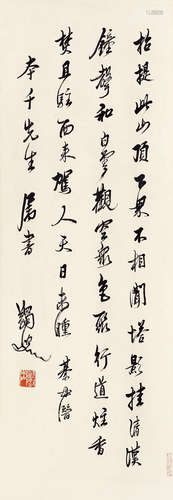 招提此山頂下界不相聞塔影挂清漢
鐘聲和白雲觀空行道炷香
焚且駐西來駕人天日未曛 綦毋潛
本千先生 屬書